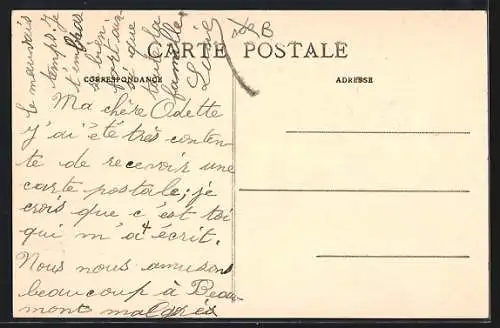 CARTE POSTALE
CORRESPONDANCE
ADRESSE
Ma chère Odette
J'ai été très conten-
te de recevoir une
carte postale; je
crois que c'est toi
qui m'a écrit.
Nous nous amusons
beaucoup à Beau-
mont malgrés
le mauvais
temps. Je
t'embrasse
bien
fort ain-
si que
toute la
famille
Louise